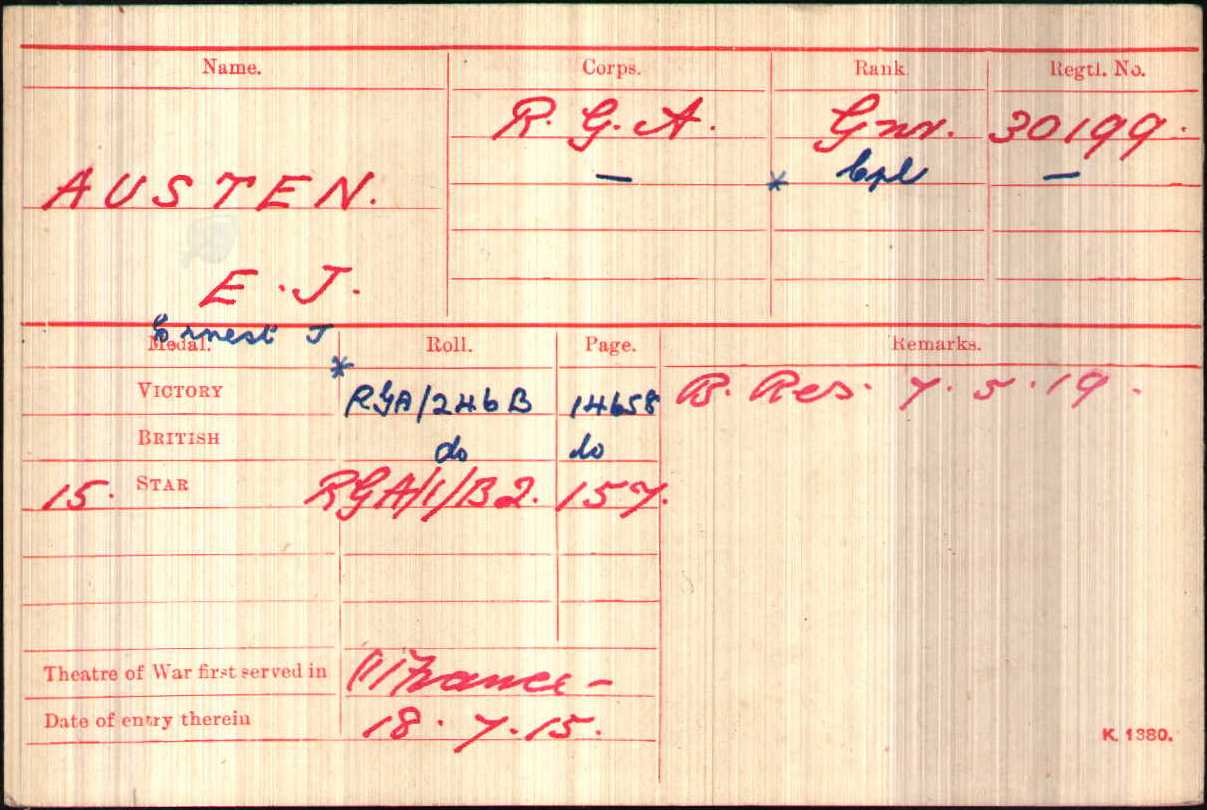 Name. Corps. Rank. Regtl. No.
R. G. A. Gnr. 30199.
AUSTEN. — * Cpl —
E. J.
Ernest J
Medal. Roll. Page. Remarks.
VICTORY * RGA/246B 14658 B. Res. 7.5.19.
BRITISH do do
15. STAR RGA/1/B2. 157.
Theatre of War first served in (1) France –
Date of entry therein 18.7.15.
K. 1380.